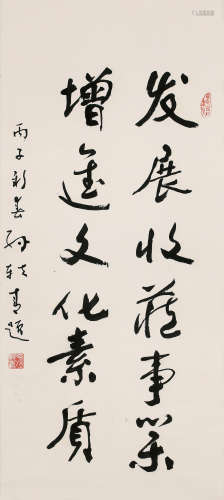 发展收藏事业
增进文化素质
丙子新春孙轶青题